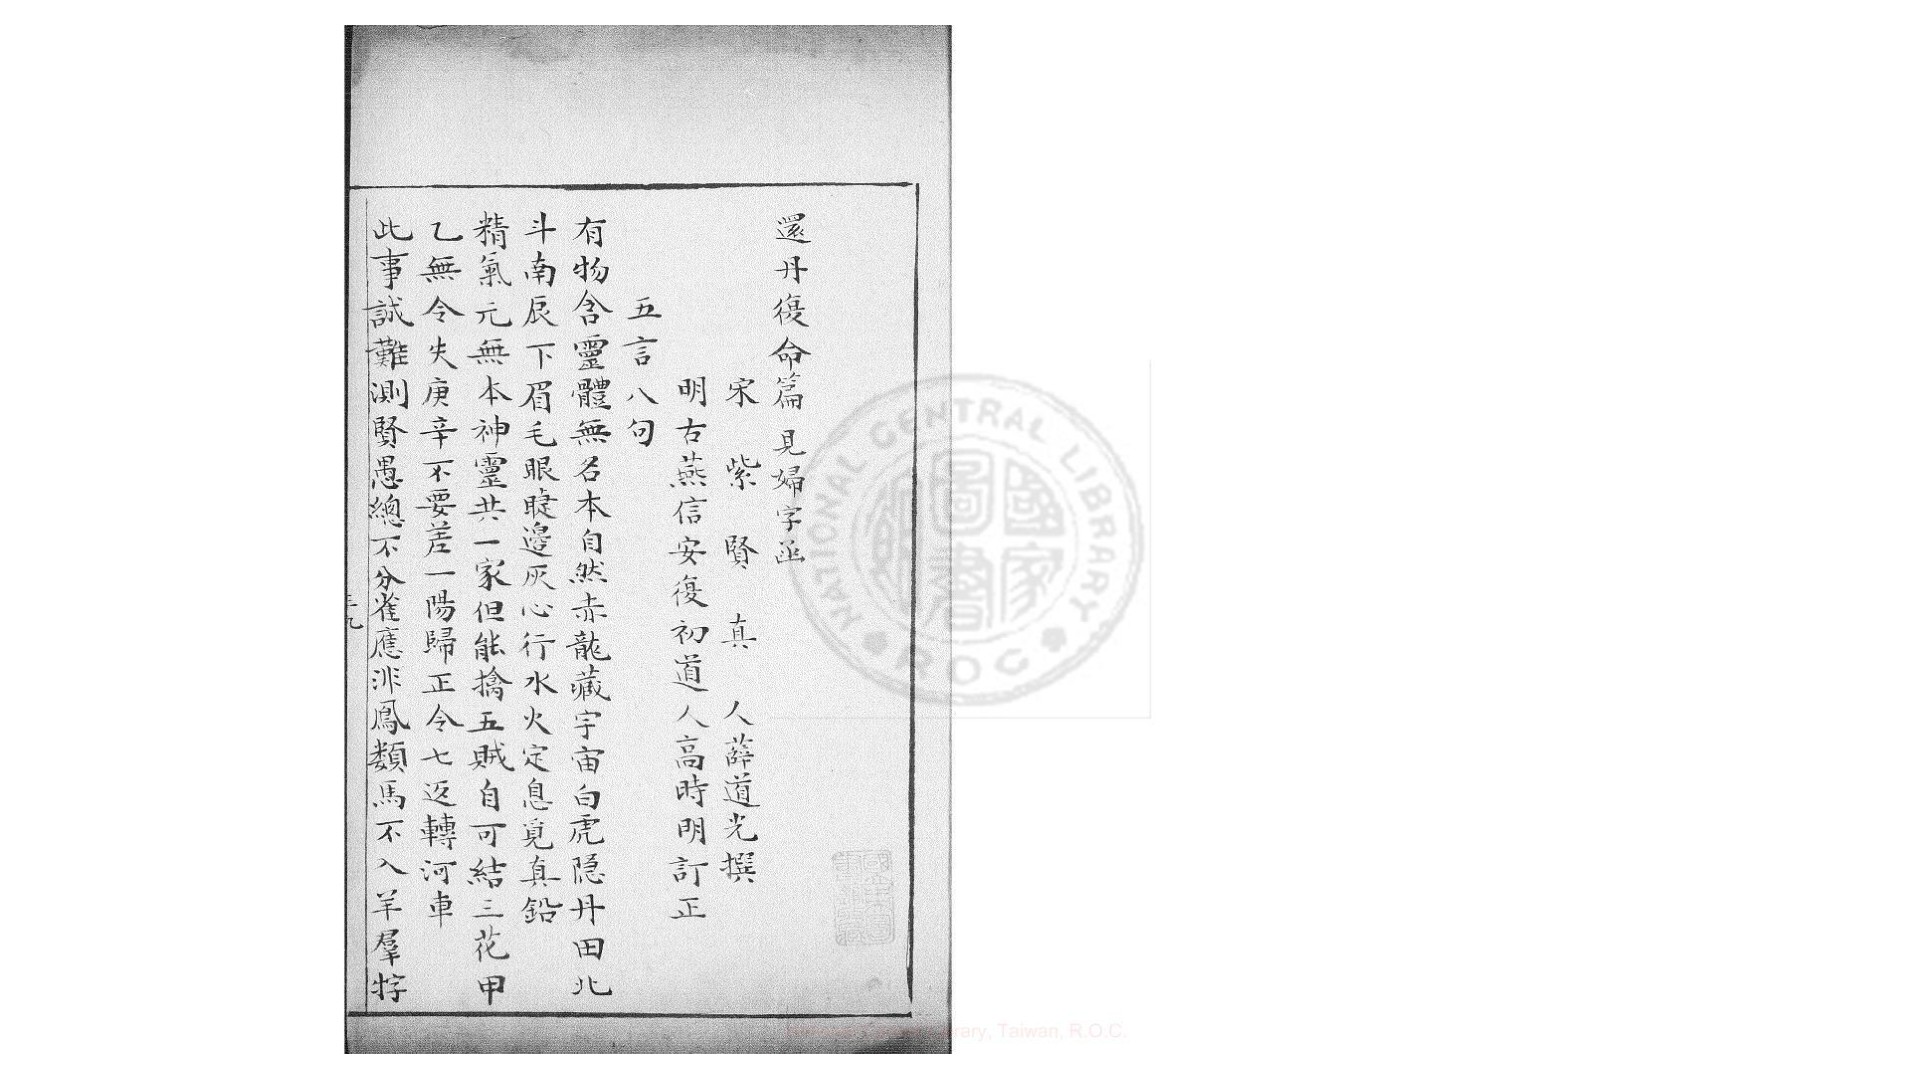 還丹復命篇 見婦字函
宋紫賢真人薛道光撰
明古燕信安復初道人高時明訂正
五言八句
有物含靈體無名本自然赤龍藏宇宙白虎隱丹田北
斗南辰下眉毛眼睫邉灰心行水火定息覓真鉛
精氣元無本神靈共一家但能擒五賊自可結三花甲
乙無令失庚辛不要差一陽歸正令七返轉河車
此事誠難測賢愚總不分雀應非鳳類馬不入羊羣牸
NATIONAL CENTRAL LIBRARY
ROC
國家圖書館
rary, Taiwan, R.O.C.